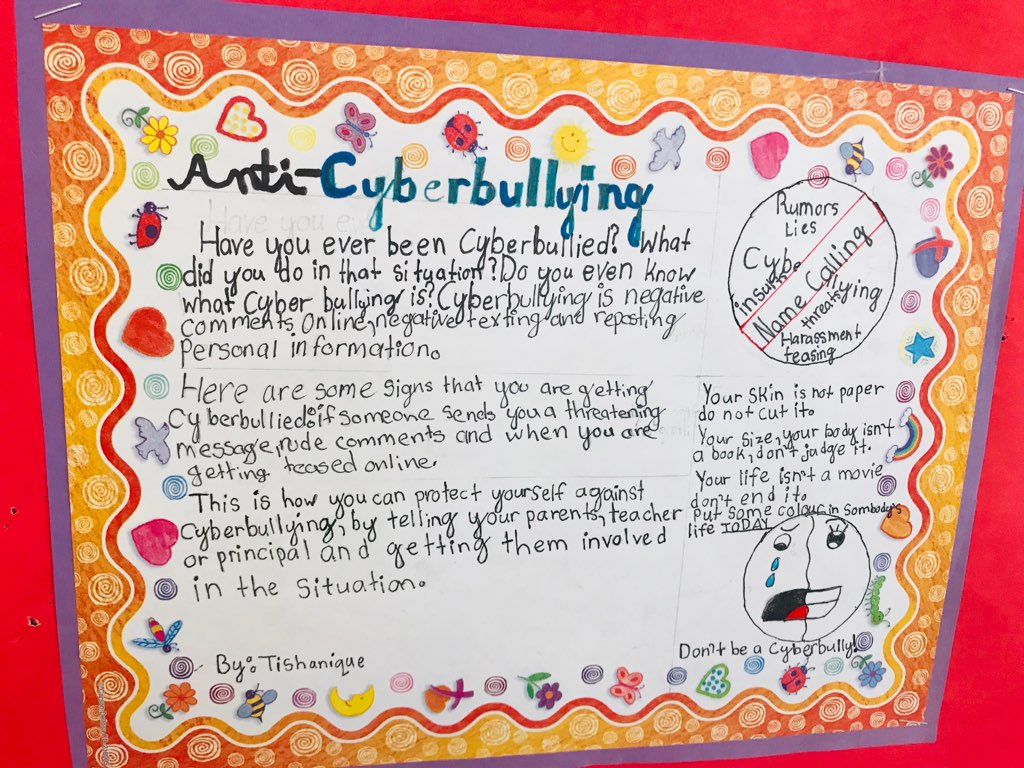 Anti-Cyberbullying
Have you ever been Cyberbullied? What
did you do in that situation? Do you even know
what Cyber bullying is? Cyberbullying is negative
comments online, negative texting and reposting
Personal information.
Here are some signs that you are getting
Cyberbullied: if someone sends you a threatening
message, rude comments and when you are
getting teased online.
This is how you can protect yourself against
Cyberbullying, by telling your parents, teacher
or principal and getting them involved
in the situation.
By: Tishanique
Rumors
Lies
Cybe
insults
Name Calling
llying
threats
Harassment
teasing
Your skin is not paper
do not cut it.
Your size, your body isn't
a book, don't judge it.
Your life isn't a movie
don't end it.
Put some colour in Sombody's
life TODAY
Don't be a Cyberbully!